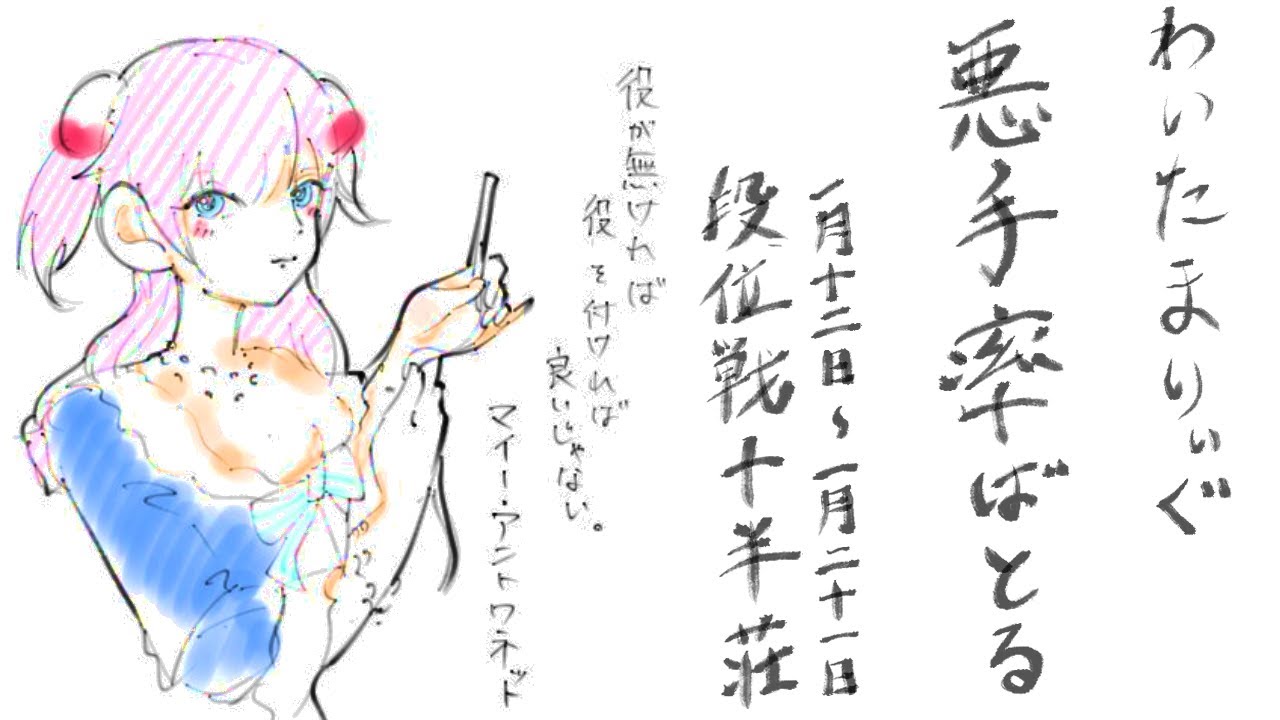 わいたまりぃぐ
悪手率ばとる
一月十二日~一月二十一日
段位戦十半荘
役が無ければ
役を付ければ
良いじゃない。
マイー・アントワネット